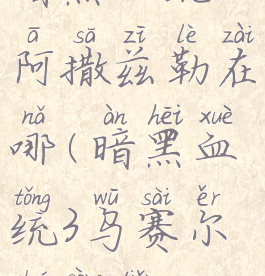 ā sā zī lè zài
阿撒兹勒在
nǎ àn hēi xuè
哪(暗黑血
tǒng wū sài ěr
统3乌赛尔